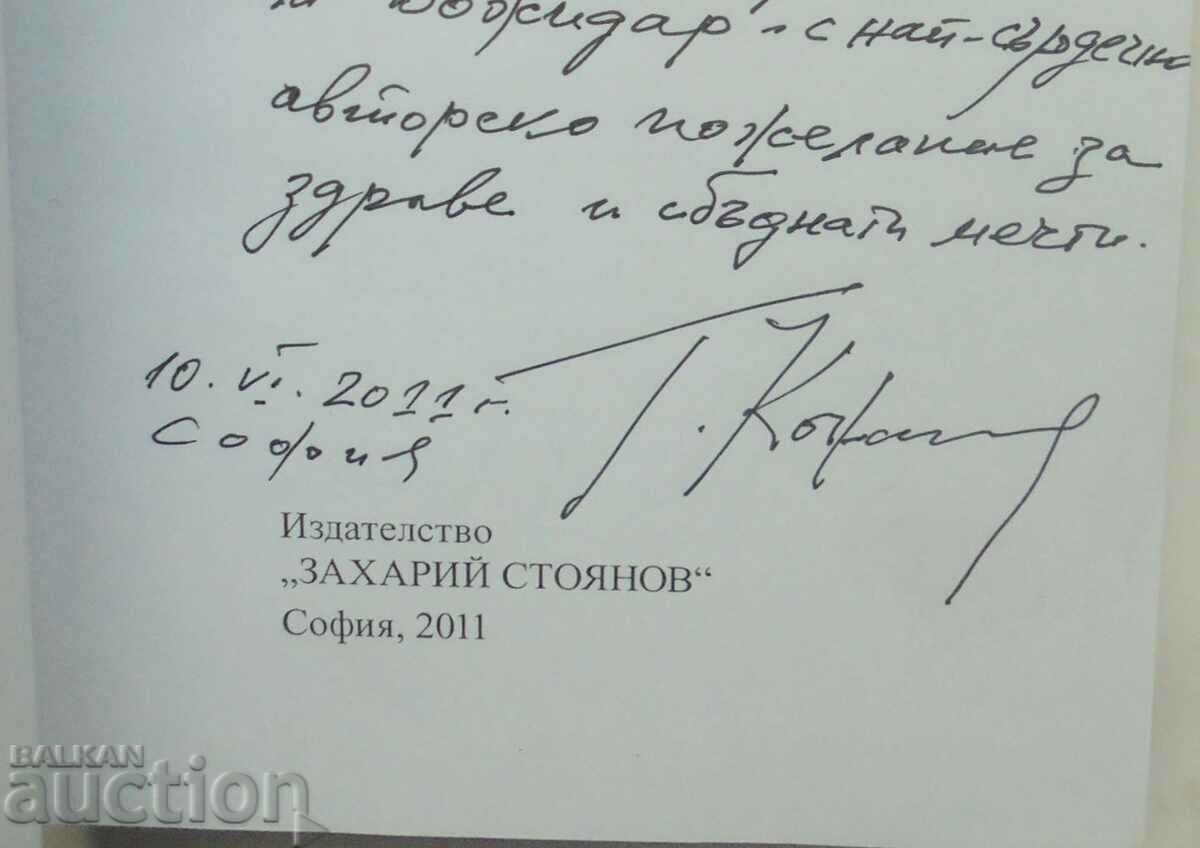 и Божидар - с най-сърдечно
авторско пожелание за
здраве и сбъднати мечти.
10. VI. 2011 г.
София
Издателство
„ЗАХАРИЙ СТОЯНОВ“
София, 2011
BALKAN
auction